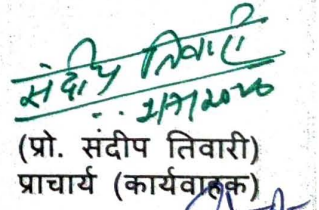 संदीप तिवारी
1/7/2026
(प्रो. संदीप तिवारी)
प्राचार्य (कार्यवाहक)